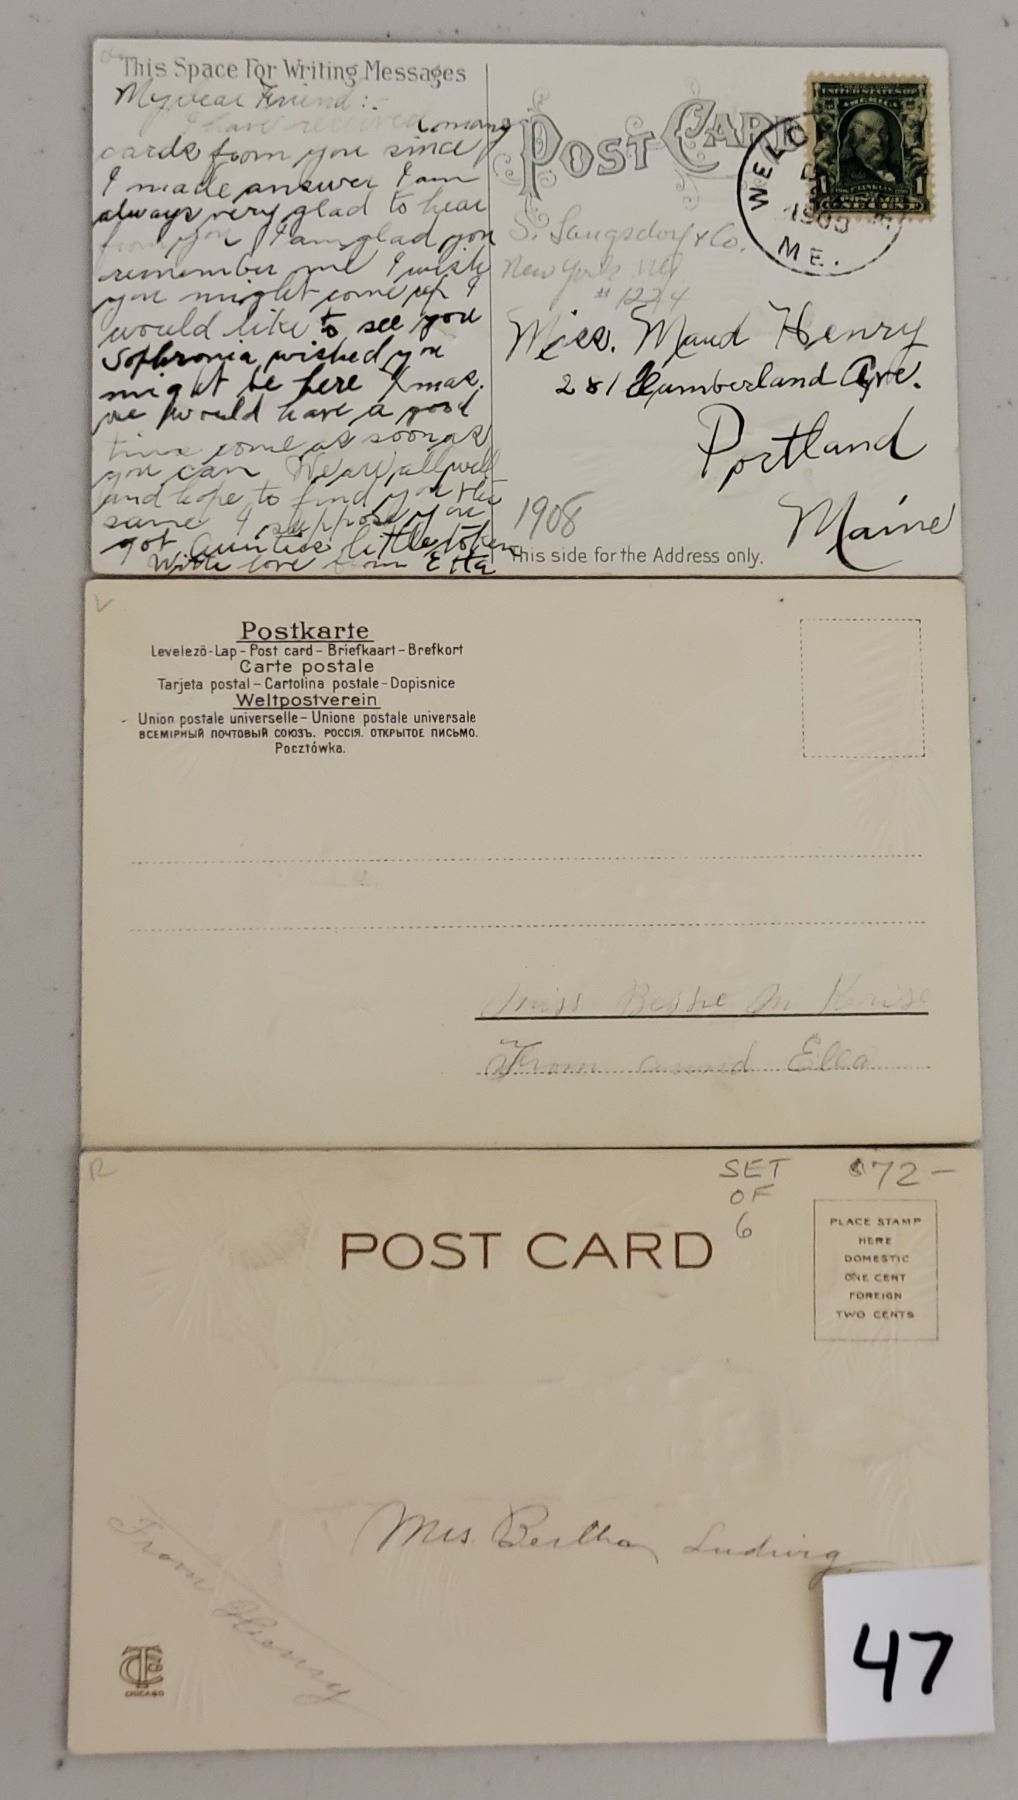 This Space For Writing Messages
My dear Friend:-
I have received so many
cards from you since
I made answer I am
always very glad to hear
from you I am glad you
remember me I wish
you might come up I
would like to see you
Sophronia wished you
might be here Xmas.
we would have a good
time come as soon as
you can We are all well
and hope to find you the
same I suppose you
got Aunties little token
With love from Etta
POST CARD
UNITED STATES OF
AMERICA
1 1
ONE CENT
WELD
1909
ME.
S. Langsdorf & Co.
New York
# 1224
Miss. Maud Henry
281 Cumberland Ave.
Portland
Maine
1908
This side for the Address only.
Postkarte
Levelező-Lap - Post card - Briefkaart - Brefkort
Carte postale
Tarjeta postal - Cartolina postale - Dopisnice
Weltpostverein
Union postale universelle - Unione postale universale
ВСЕМІРНЫЙ ПОЧТОВЫЙ СОЮЗЪ. РОССІЯ. ОТКРЫТОЕ ПИСЬМО.
Pocztówka.
Miss Bessie M
From Ella
R
SET
OF
6
$72-
POST CARD
PLACE STAMP
HERE
DOMESTIC
ONE CENT
FOREIGN
TWO CENTS
Mrs. Bertha Ludwig
From Henry
CHICAGO
47